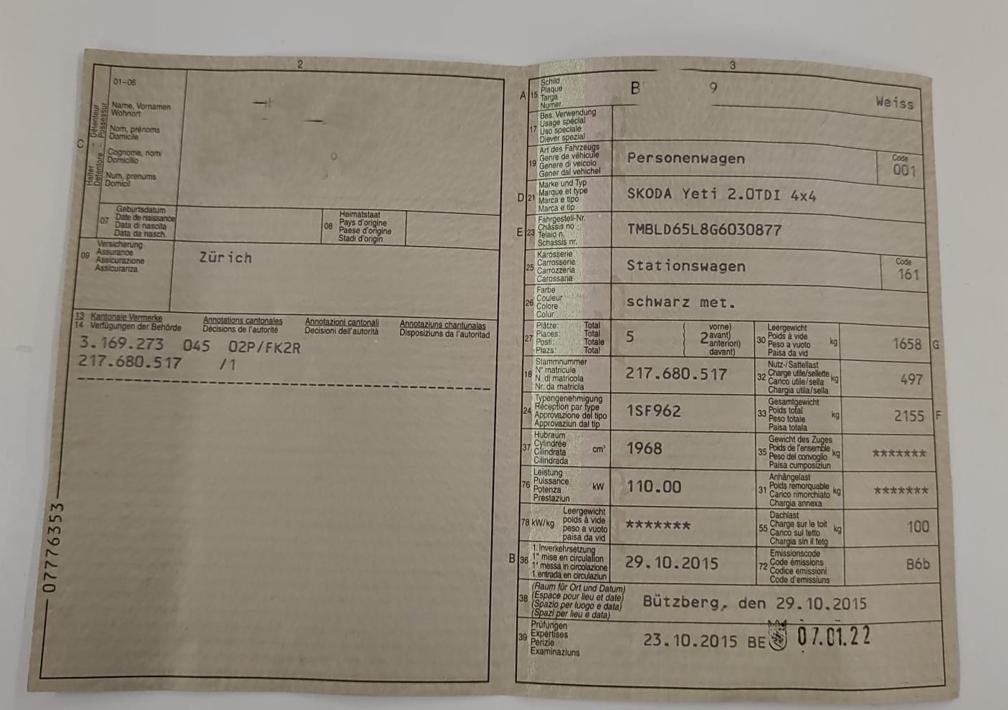 2
01-06
C
Halter - Détenteur
Detentore - Possessur
Name, Vornamen
Wohnort
Nom, prénoms
Domicile
Cognome, nom
Domicilio
Num, prenums
Domicil
07
Geburtsdatum
Date de naissance
Data di nascita
Data da nasch.
08
Heimatstaat
Pays d'origine
Paese d'origine
Stadi d'origin
09
Versicherung
Assurance
Assicurazione
Assicuranza
Zürich
13 Kantonale Vermerke Annotations cantonales Annotazioni cantonali Annotaziuns chantunalas
14 Verfügungen der Behörde Décisions de l'autorité Decisioni dell'autorità Disposiziuns da l'autoritad
3.169.273 045 02P/FK2R
217.680.517 /1
07776353
3
A 15
Schild
Plaque
Targa
Numer
B 9 Weiss
17
Bes. Verwendung
Usage spécial
Uso speciale
Diever spezial
19
Art des Fahrzeugs
Genre de véhicule
Genere di veicolo
Gener dal vehichel
Personenwagen
Code
001
D 21
Marke und Typ
Marque et type
Marca e tipo
Marca e tip
SKODA Yeti 2.0TDI 4x4
E 23
Fahrgestell-Nr.
Châssis no
Telaio n.
Schassis nr.
TMBLD65L8G6030877
25
Karosserie
Carrosserie
Carrozzeria
Carossaria
Stationswagen
Code
161
26
Farbe
Couleur
Colore
Colur
schwarz met.
27
Plätze: Total
Places: Total
Posti: Totale
Plazs: Total
5
2
vorne)
avant)
anteriori)
davant)
30
Leergewicht
Poids à vide
Peso a vuoto
Paisa da vid
kg
1658 G
18
Stammnummer
N° matricule
N. di matricola
Nr. da matricla
217.680.517
32
Nutz-/Sattellast
Charge utile/sellette
Carico utile/sella
Chargia utila/sella
kg
497
24
Typengenehmigung
Réception par type
Approvazione del tipo
Approvaziun dal tip
1SF962
33
Gesamtgewicht
Poids total
Peso totale
Paisa totala
kg
2155 F
37
Hubraum
Cylindrée
Cilindrata
Cilindrada
cm³
1968
35
Gewicht des Zuges
Poids de l'ensemble
Peso del convoglio
Paisa cumposiziun
kg
*******
76
Leistung
Puissance
Potenza
Prestaziun
kW
110.00
31
Anhängelast
Poids remorquable
Carico rimorchiato
Chargia annexa
kg
*******
78 kW/kg
Leergewicht
poids à vide
peso a vuoto
paisa da vid
*******
55
Dachlast
Charge sur le toit
Carico sul tetto
Chargia sin il tetg
kg
100
B 36
1. Inverkehrsetzung
1re mise en circulation
1a messa in circolazione
1. entrada en circulaziun
29.10.2015
72
Emissionscode
Code émissions
Codice emissioni
Code d'emissiuns
B6b
38
(Raum für Ort und Datum)
(Espace pour lieu et date)
(Spazio per luogo e data)
(Spazi per lieu e data)
Bützberg, den 29.10.2015
39
Prüfungen
Expertises
Perizie
Examinaziuns
23.10.2015 BE 07.01.22